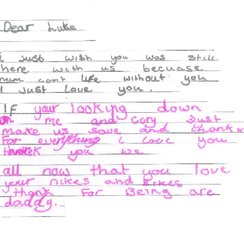 Dear Luke
i Just wish you was still
here with us becuase
mum cant life without you
I just love you.
IF your looking down
on me and Cory Just
make us save and thanks
For everything i love you
you we
all now that you love
your nikes and bikes
thank For Being are
daddy...